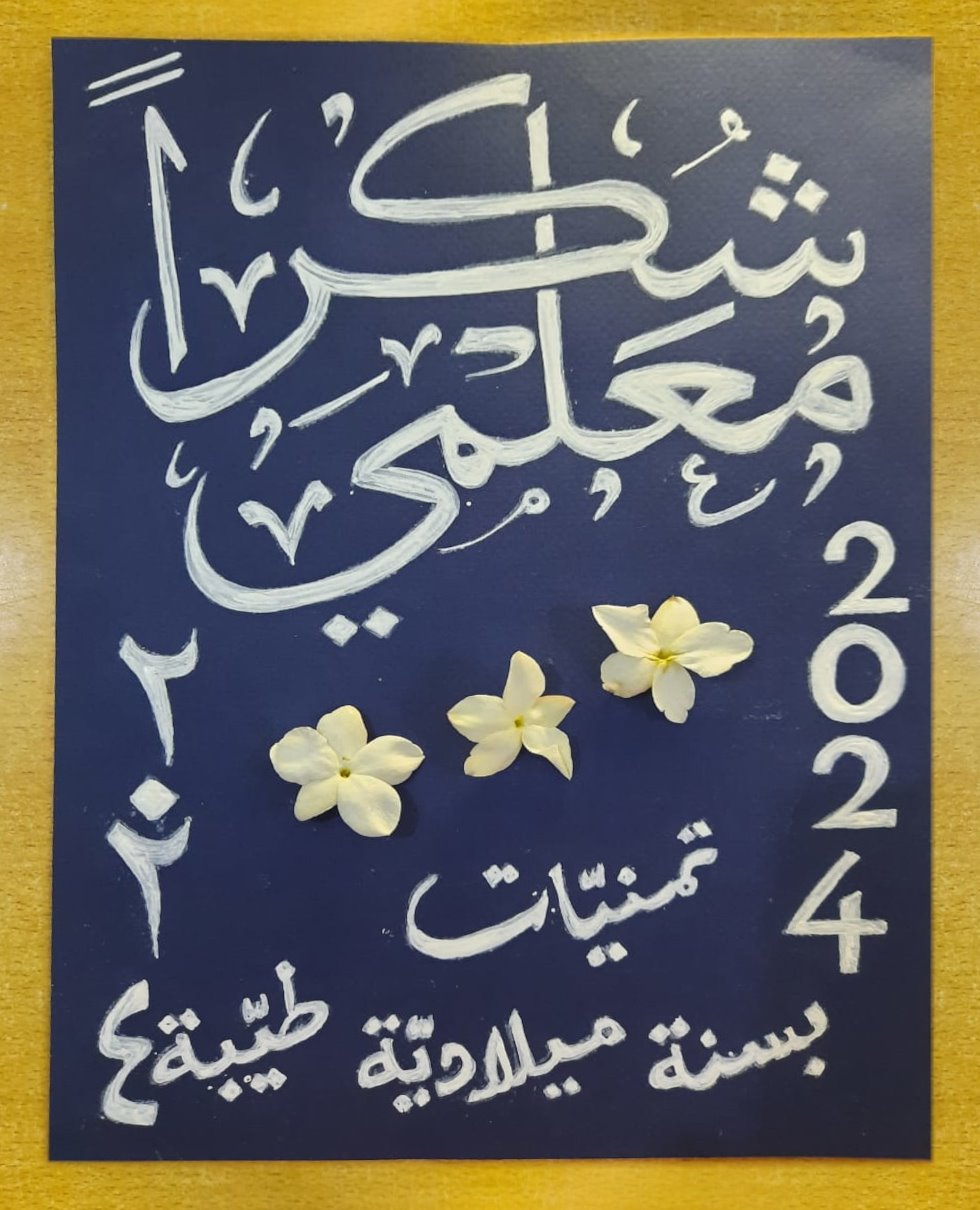 شُكْرًا
مُعَلِّمِي
2024
٢٠٢٤
تمنيّات
بسنة ميلاديّة طيّبة